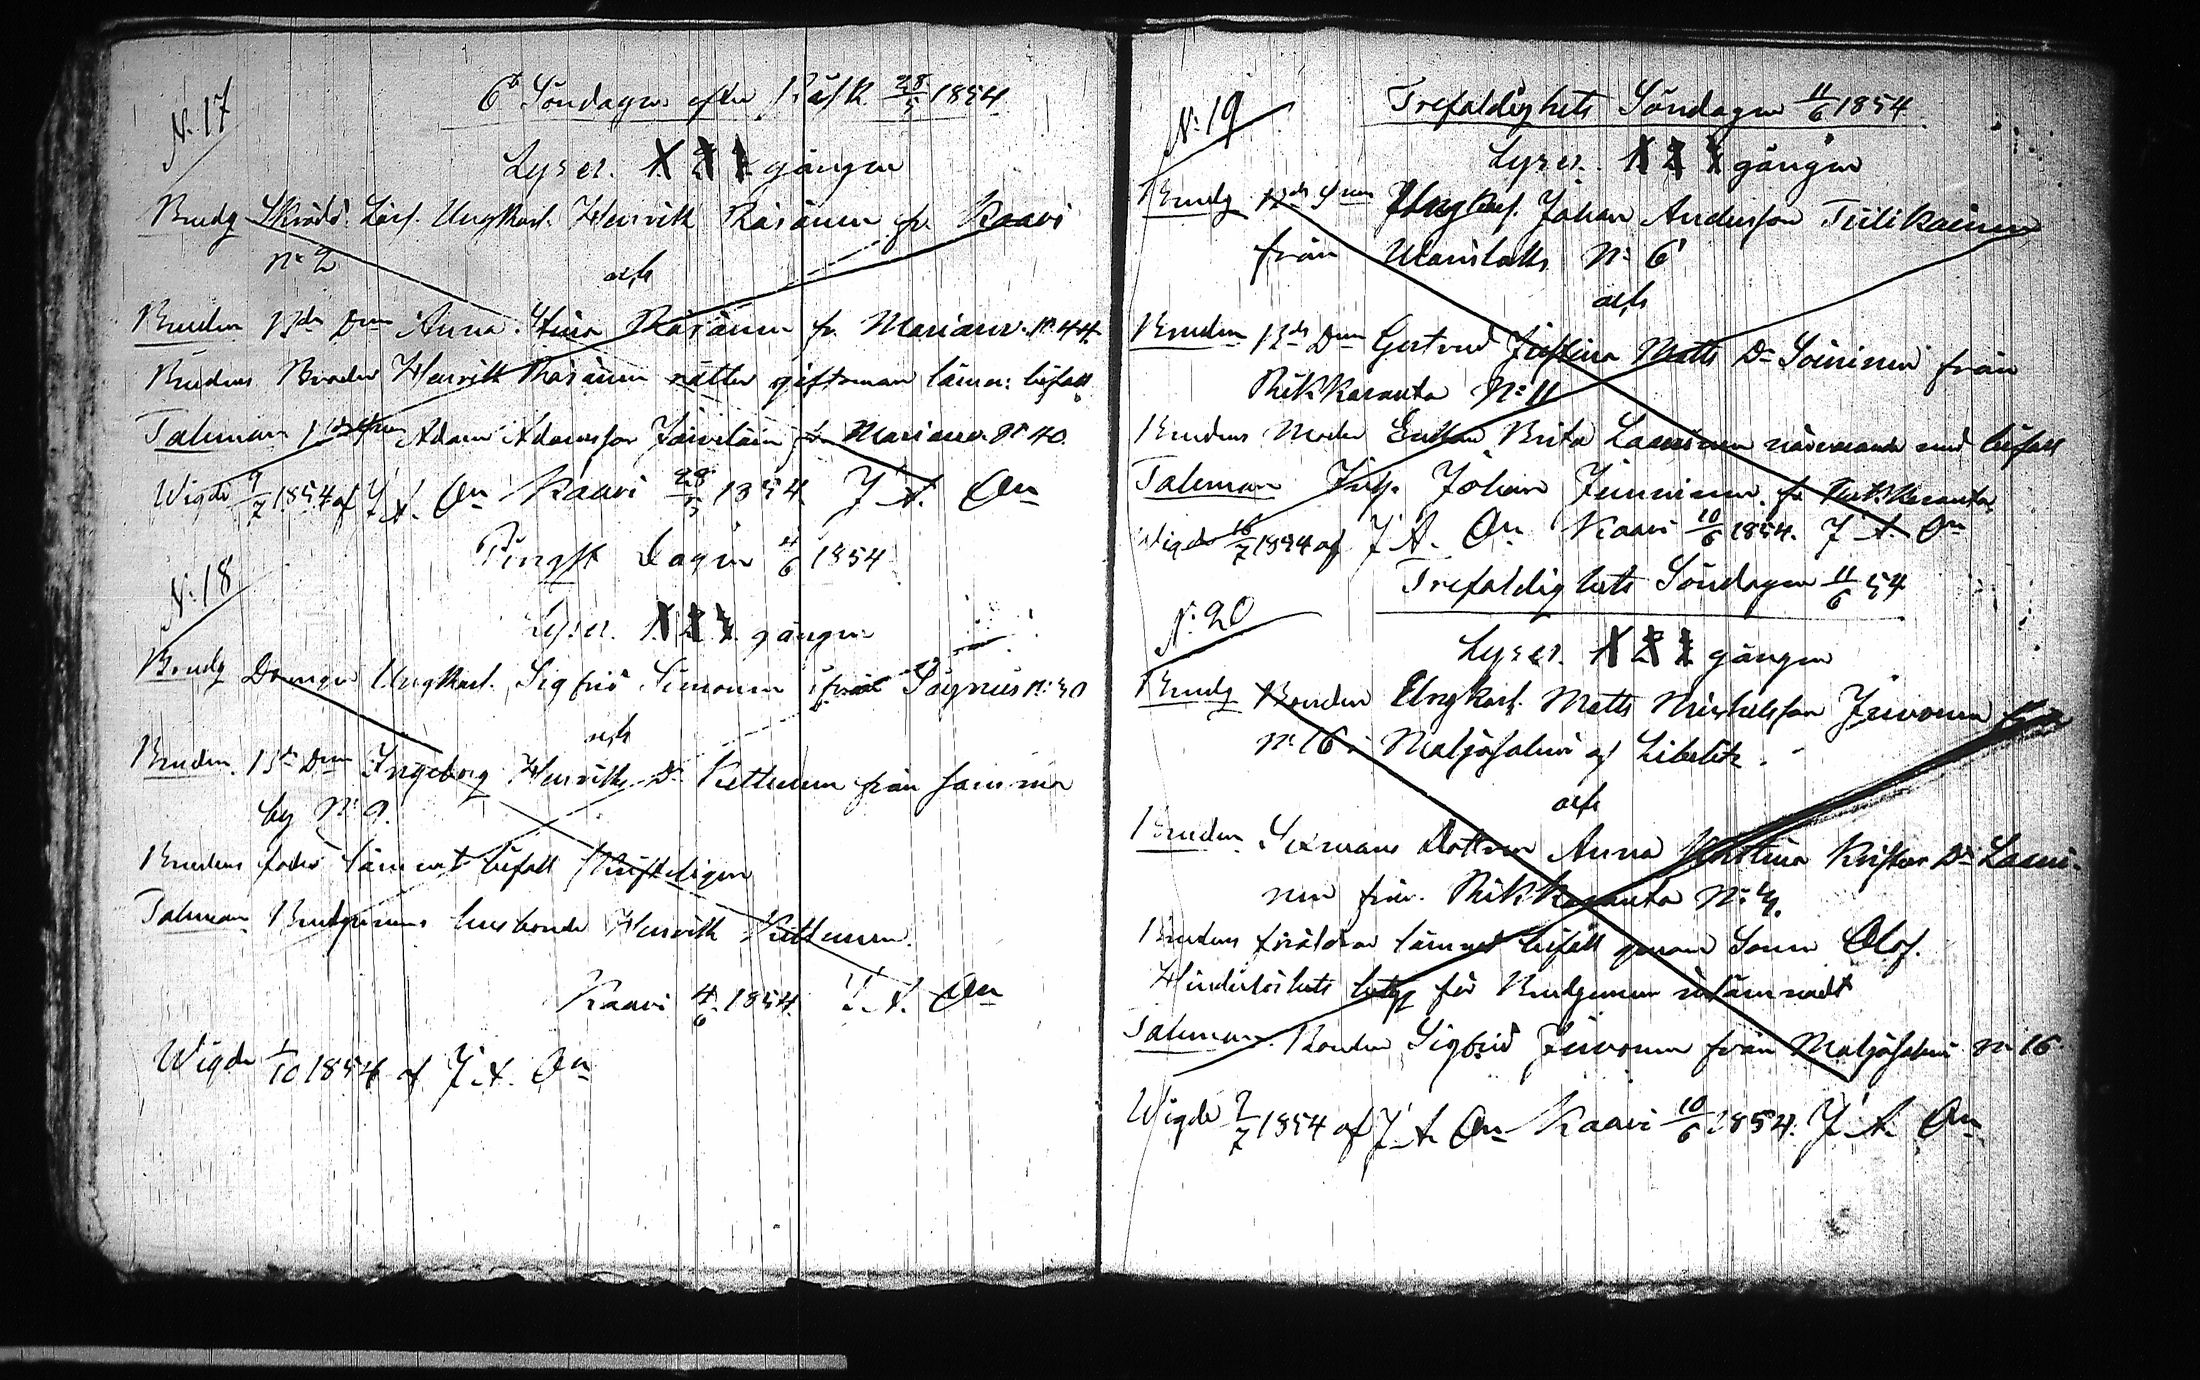 N:17
6te Söndagen efter Påsk 28/5 1854
Lyses. 1 2 3 gången
Brudg Skrädd. Lärl. Ungkarl. Henrik Räsänen fr. Kaavi
N: 2
och
Bruden Bde Dttr Anna Stina Räsänen fr. Mariavr. N: 44
Brudens Broder Henrik Räsänen rätter giftoman lämn: bifall
Taleman Adam Adamsson Jäiveläin fr Mariavr. N: 40
Wigde 9/7 1854 af J. A. On Kaavi 28/5 1854 J A. On
N:18
Pingst Dagen 4/6 1854
Lyses. 1 2 3 gången
Brudg Drengen Ungkarl. Sigfrid Simonen ifrån Signus N: 30
och
Bruden. Bde Dttr Ingeborg Henriks Dr Kettunen från samma
by N: 9.
Brudens fader lämnat bifall skrifteligen
Taleman Brudgumens husbonde Henrik Kettunen.
Kaavi 4/6 1854 J. A. On
Wigde 1/10 1854 af J. A. On
N:19
Trefaldighets Söndagen 11/6 1854
Lyses. 1 2 3 gången
Brudg Bde Son Ungkarl. Johan Andersson Tiilikainen
från N: 6
och
Bruden Bde Dttr Gertrud Justina Matts Dr Soininen från
Rikkaranta N: 11
Brudens Moder Enkan Brita Laaninen närvarande med bifall
Taleman Johan Jünninen fr Rikkaranta
Wigde 16/7 1854 af J A. On Kaavi 10/6 1854. J A. On
Trefaldighets Söndagen 11/6 54
N:20
Lyses. 1 2 3 gången
Brudg Bonden Ungkarl. Matts Michelsson Juvonen från
N: 16 i Maljasalmi af Libelits.
och
Bruden Sexmans Dottren Anna Kristina Krister Dr Laani-
nen från. Rikkaranta N: 4.
Brudens föräldrar lämnat bifall genom Sonen Olof.
Hinderlöshets betyg för Brudgumen inlämnadt
Taleman. Bonden Sigfrid Juvonen från Maljasalmi N: 16
Wigde 2/7 1854 af J. A. On Kaavi 10/6 1854. J A. On